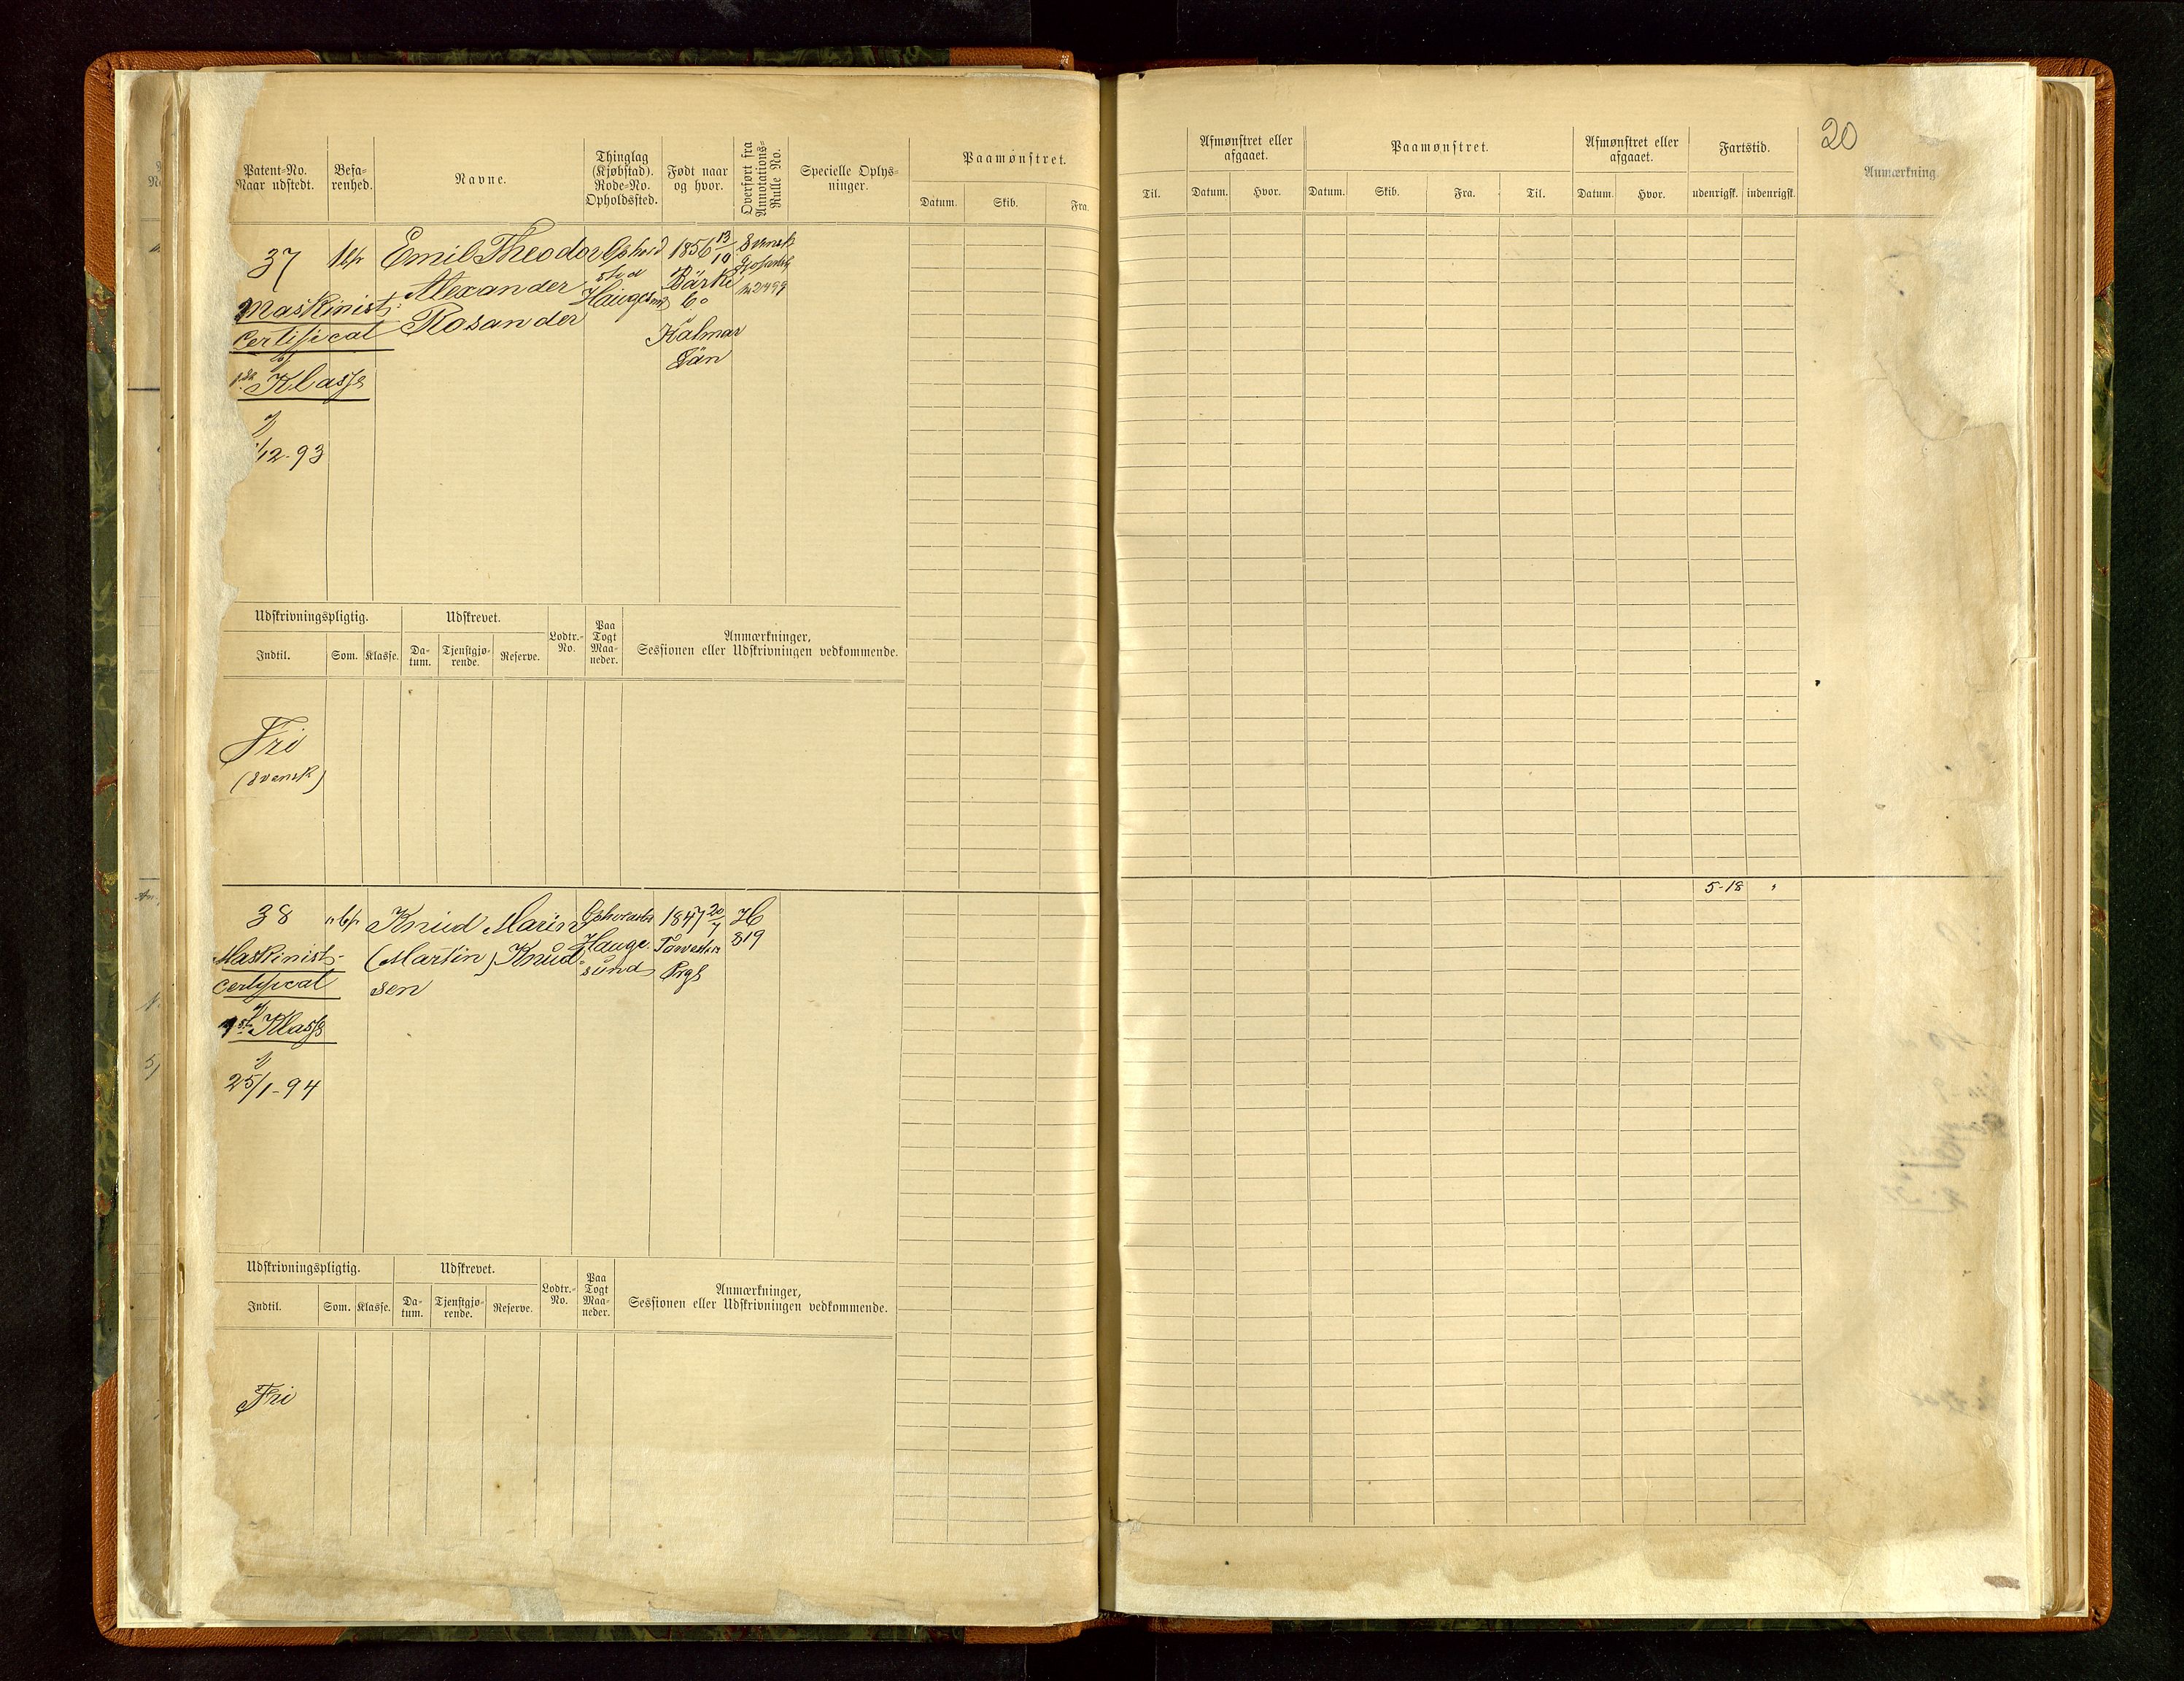 Patent-No. Naar udstedt.
Befarenhed.
Navne.
Thinglag (Kjøbstad). Rode-No. Opholdssted.
Født naar og hvor.
Overført fra Annotations-Rulle No.
Specielle Oplys-
ninger.
Paamønstret.
Datum. Skib. Fra.
37
Maskinist-
certifical
af
Klasse
12-93
Emil Theodor
Alexander
Rosander
Ophold
sted
Haugesund
1856 13/10
Kalmar
Län
Svensk
2499
Udskrivningspligtig. Udskrevet.
Lodtr.-No.
Paa Togt Maa-neder.
Anmærkninger,
Sessionen eller Udskrivningen vedkommende.
Indtil. Som. Klasse. Da-tum. Tjenstgjø-rende. Reserve.
Fri
(Svensk)
38
Maskinist-
certifical
af
1ste Klasse
25/1-94
Knud Marin
(Martin) Knud-
sen
Hauge-
sund
1847 20/7
Prgj
H
819
Udskrivningspligtig. Udskrevet.
Lodtr.-No.
Paa Togt Maa-neder.
Anmærkninger,
Sessionen eller Udskrivningen vedkommende.
Indtil. Som. Klasse. Da-tum. Tjenstgjø-rende. Reserve.
Fri
20
Afmønstret eller afgaaet. Paamønstret. Afmønstret eller afgaaet. Fartstid.
Anmærkning
Til. Datum. Hvor. Datum. Skib. Fra. Til. Datum. Hvor. udenrigsk. indenrigsk.
5-18 "